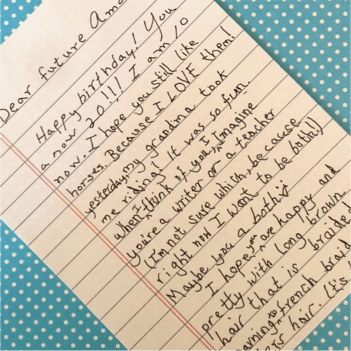 Dear future Ame
Happy birthday! You
a now 20!!! I am 10
now. I hope you still like
horses. Because I LOVE them!
yesterday, my grandma took
me riding. It was so fun.
When I think of you, I imagine
you're a writer or a teacher
(I'm not sure which, because
right now I want to be both!)
Maybe you a both?
I hope you are happy and
pretty with long brown
hair that is braided
French braid
hair. It's